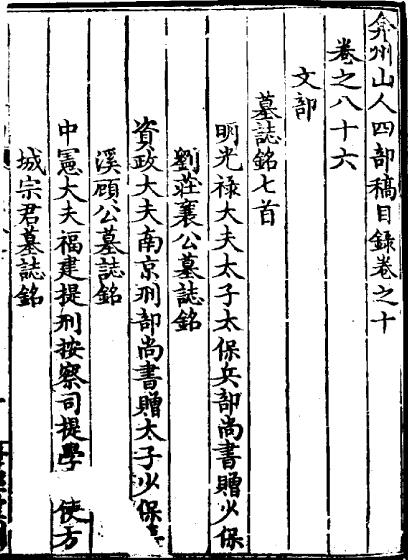 弇州山人四部稿目錄卷之十
卷之八十六
文部
墓誌銘七首
明光祿大夫太子太保兵部尚書贈少保
劉莊襄公墓誌銘
資政大夫南京刑部尚書贈太子少保
溪顧公墓誌銘
中憲大夫福建提刑按察司提學 使方
城宗君墓誌銘